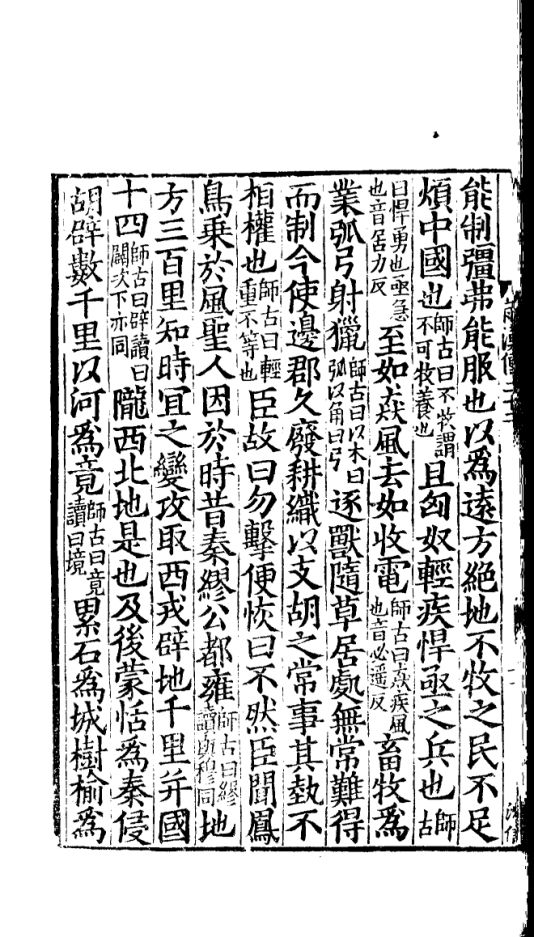 能制彊弗能服也以為遠方絕地不牧之民不足
煩中國也師古曰不牧謂不可牧養也且匈奴輕疾悍亟之兵也師古
曰悍勇也亟急也音居力反至如猋風去如收電師古曰猋疾風也音必遥反畜牧為
業弧弓射獵師古曰以木曰弧以角曰弓逐獸隨草居處無常難得
而制今使邊郡久廢耕織以支胡之常事其埶不
相權也師古曰輕重不等也臣故曰勿擊便恢曰不然臣聞鳳
鳥乗於風聖人因於時昔秦繆公都雍師古曰繆讀與穆同地
方三百里知時宜之變攻取西戎辟地千里并國
十四師古曰辟讀曰闢次下亦同隴西北地是也及後蒙恬為秦侵
胡辟數千里以河為竟師古曰竟讀曰境累石為城樹榆為